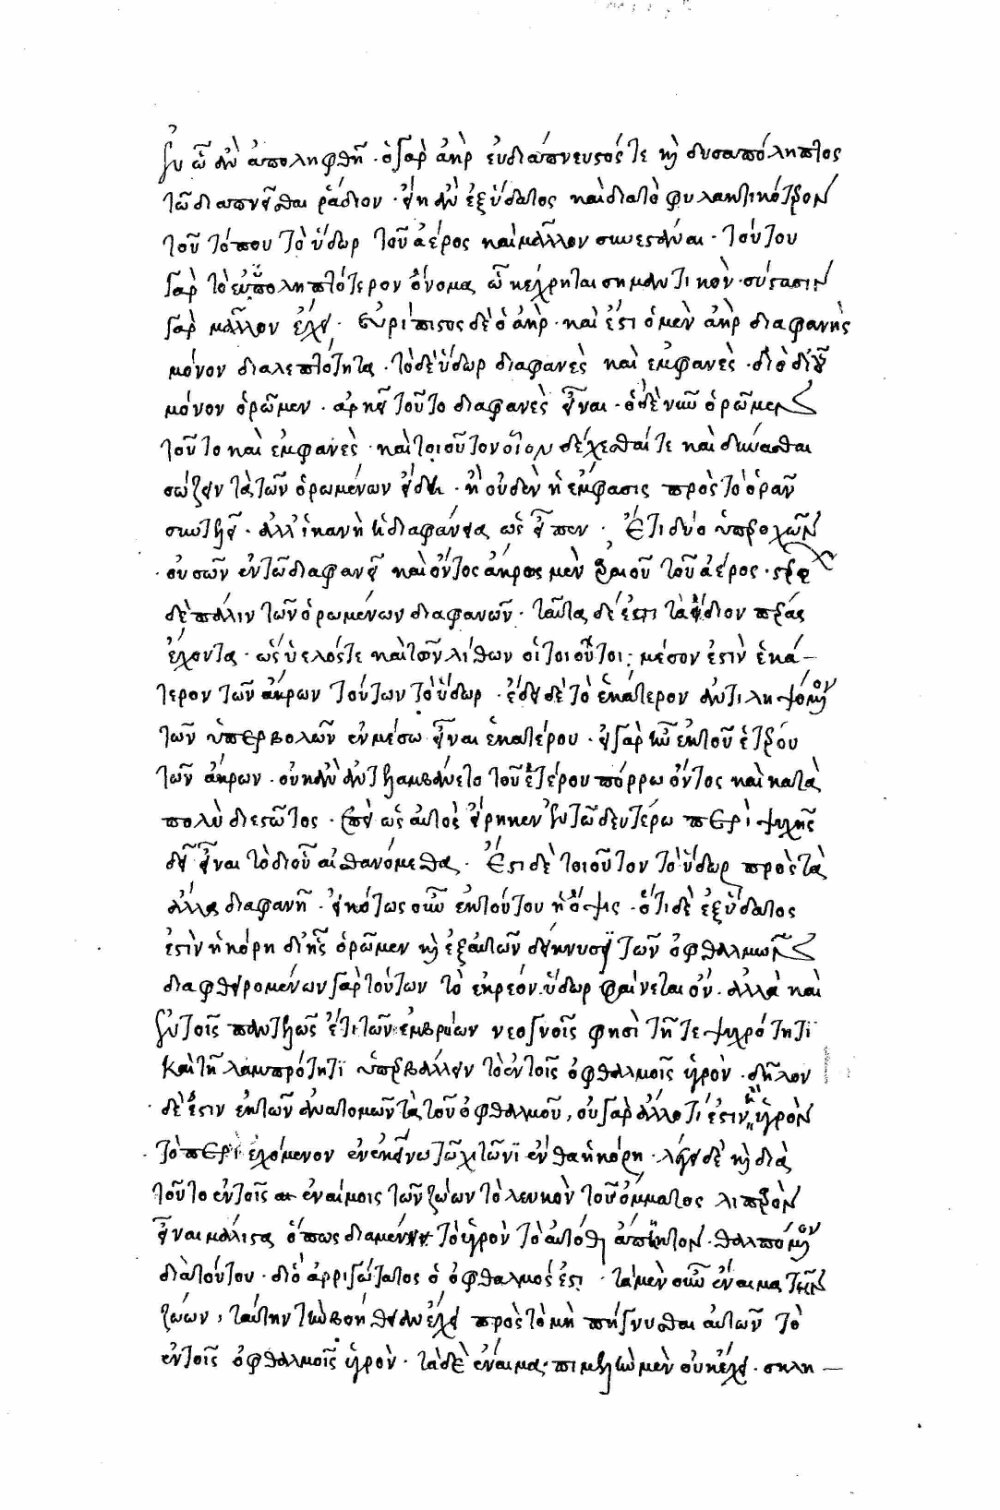 ἐν ᾧ ἂν ἀποληφθῇ · ὁ γὰρ ἀὴρ εὐδιάπνευστός τε καὶ δυσαπόληπτος
τῷ διαπνεῖσθαι ῥάδιον · εἴη ἂν ἐξ ὕδατος καὶ διὰ τὸ φυλακτικότερον
τοῦ τόπου τὸ ὕδωρ τοῦ ἀέρος καὶ μᾶλλον συνεστάναι · τούτου
γὰρ τὸ εὐαποληπτότερον ὄνομα ᾧ κέχρηται σημαντικόν · σύστασιν
γὰρ μᾶλλον ἔχει · εὐρίπιστος δὲ ὁ ἀήρ · καὶ ἔστι ὁ μὲν ἀὴρ διαφανὴς
μόνον διὰ λεπτότητα · τὸ δὲ ὕδωρ διαφανὲς καὶ ἐμφανές · διὸ δι' οὗ
μόνον ὁρῶμεν · ἀρκεῖ τοῦτο διαφανὲς εἶναι · ὁ δὲ νῦν ὁρῶμεν
τοῦτο καὶ ἐμφανὲς · καὶ τοιοῦτον οἷον δέχεσθαί τε καὶ δύνασθαι
σώζειν τὰ τῶν ὁρωμένων εἴδη · ἢ οὐδὲν ἡ ἔμφασις πρὸς τὸ ὁρᾶν
συντελεῖ · ἀλλ' ἱκανὴ ἡ διαφάνεια ὡς εἶπεν · Ἔτι δύο ὑπεροχῶν
οὐσῶν ἐν τῷ διαφανεῖ καὶ ὄντος ἄκρου μὲν ἀραιοῦ τοῦ ἀέρος · στερεῶν
δὲ πάλιν τῶν ὁρωμένων διαφανῶν · ταῦτα δέ ἐστι τὰ ἴδιον πέρας
ἔχοντα · ὡς ὕελός τε καὶ τῶν λίθων οἱ τοιοῦτοι · μέσον ἐστὶν ἑκά-
τερον τῶν ἄκρων τούτων τὸ ὕδωρ · ἔδει δὲ τὸ ἑκάτερον ἀντιληψόμενον
τῶν ὑπερβολῶν ἐν μέσῳ εἶναι ἑκατέρου · εἰ γὰρ ἦν ἐκ τοῦ ἑτέρου
τῶν ἄκρων · οὐκ ἂν ἀντελαμβάνετο τοῦ ἑτέρου πόρρω ὄντος καὶ κατὰ
πολὺ διεστῶτος · ἐπεὶ ὡς αὐτὸς εἴρηκεν ἐν τῷ δευτέρῳ περὶ ψυχῆς
δεῖ εἶναι τὸ δι' οὗ αἰσθανόμεθα · Ἔστι δὲ τοιοῦτον τὸ ὕδωρ πρὸς τὰ
ἄλλα διαφανῆ · εἰκότως οὖν ἐκ τούτου ἡ ὄψις · ὅτι δὲ ἐξ ὕδατος
ἐστὶν ἡ κόρη δι' ἧς ὁρῶμεν καὶ ἐξ αὐτῶν δείκνυσι τῶν ὀφθαλμῶν
διαφθειρομένων γὰρ τούτων τὸ ἐκρέον ὕδωρ φαίνεται ὄν · ἀλλὰ καὶ
ἐν τοῖς παντελῶς ἔτι τῶν ἐμβρύων νεογνοῖς φησὶ τῇ τε ψυχρότητι
καὶ τῇ λαμπρότητι ὑπερβάλλειν τὸ ἐν τοῖς ὀφθαλμοῖς ὑγρόν · δῆλον
δέ ἐστιν ἐκ τῶν ἀνατομῶν τὰ τοῦ ὀφθαλμοῦ, οὐ γὰρ ἄλλο τί ἐστιν ἢ ὑγρὸν
τὸ περιεχόμενον ἐν ἐκείνῳ τῷ χιτῶνι ἔνθα ἡ κόρη · λέγει δὲ καὶ διὰ
τοῦτο ἐν τοῖς ἐναίμοις τῶν ζώων τὸ λευκὸν τοῦ ὄμματος λιπαρὸν
εἶναι μάλιστα ὅπως διαμένῃ τὸ ὑγρὸν τὸ αὐτόθι ἄπηκτον · θαλπόμενον
διὰ τούτου · διὸ ἀρριγώτατος ὁ ὀφθαλμός ἐστι · τὰ μὲν οὖν ἔναιμα τῶν
ζώων, ταύτην τὴν βοήθειαν ἔχει πρὸς τὸ μὴ πήγνυσθαι αὐτῶν τὸ
ἐν τοῖς ὀφθαλμοῖς ὑγρόν · τὰ δὲ ἔναιμα · πιμελὴν μὲν οὐκ ἔχει · σκλη-